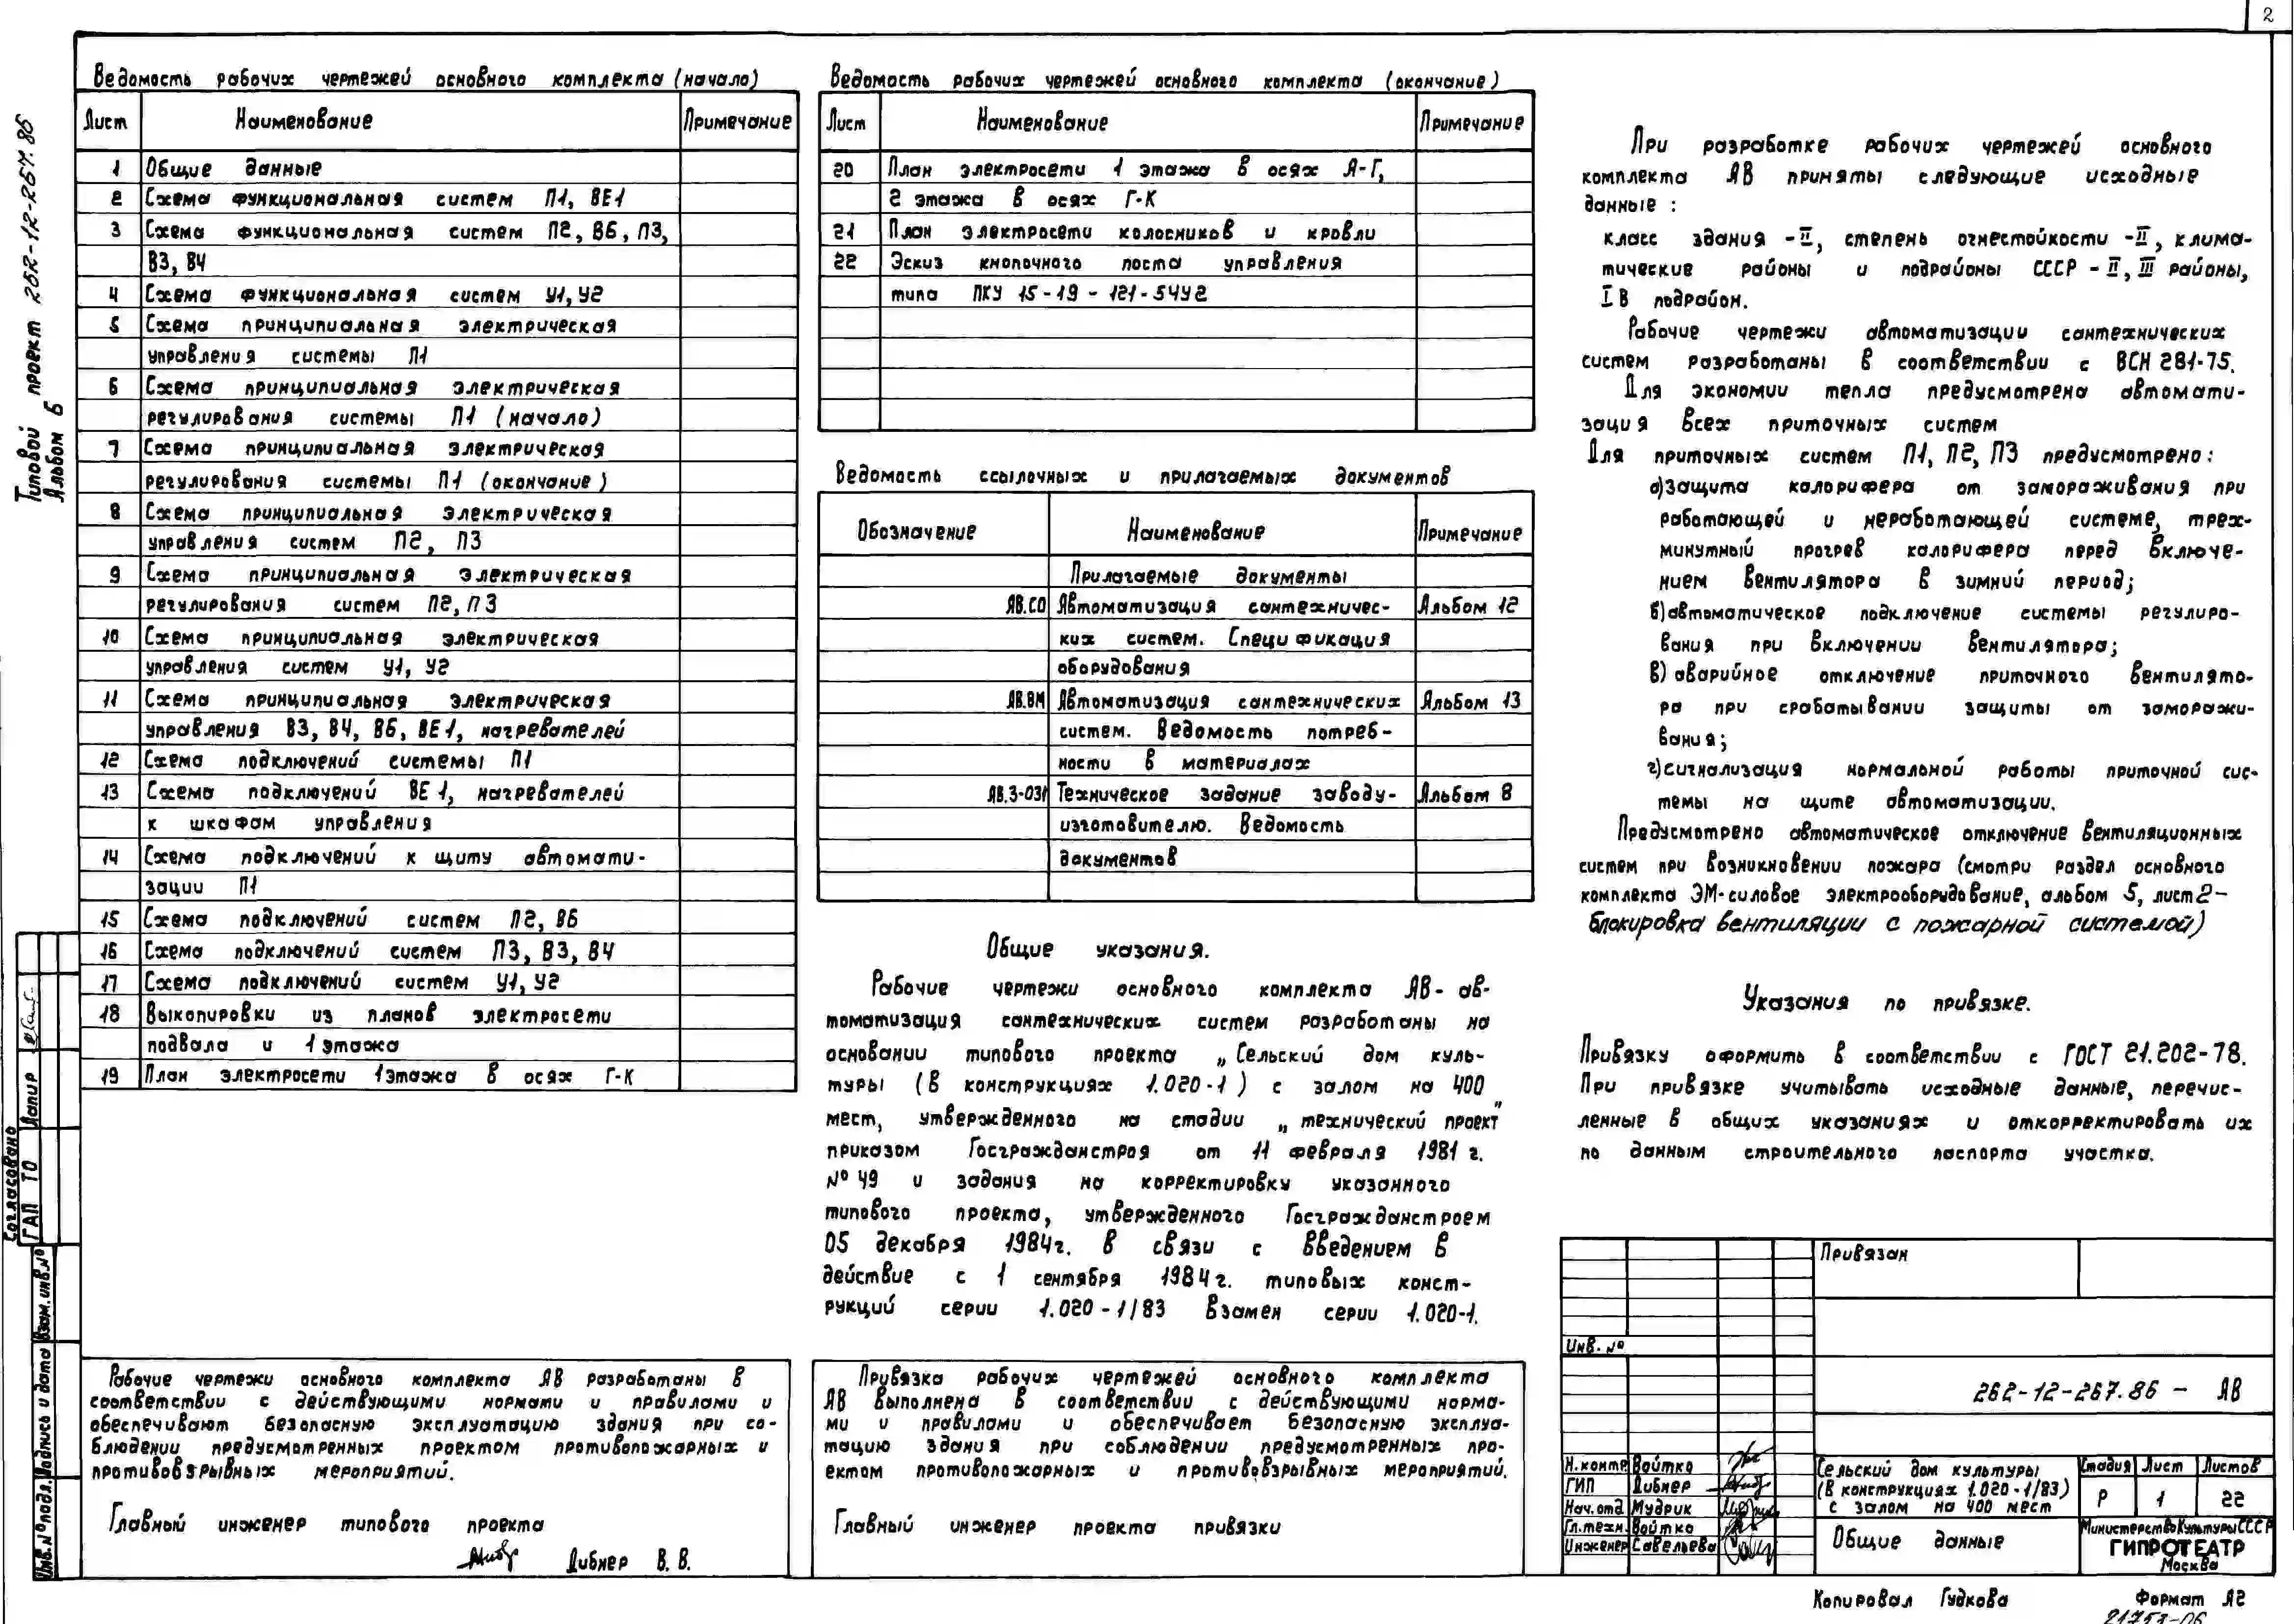 2
Типовой проект 262-12-267.86
Альбом 6
Ведомость рабочих чертежей основного комплекта (начало)
Лист Наименование Примечание
1 Общие данные
2 Схема функциональная систем П1, ВЕ1
3 Схема функциональная систем П2, В6, П3,
В3, В4
4 Схема функциональная систем У1, У2
5 Схема принципиальная электрическая
управления системы П1
6 Схема принципиальная электрическая
регулирования системы П1 (начало)
7 Схема принципиальная электрическая
регулирования системы П1 (окончание)
8 Схема принципиальная электрическая
управления систем П2, П3
9 Схема принципиальная электрическая
регулирования систем П2, П3
10 Схема принципиальная электрическая
управления систем У1, У2
11 Схема принципиальная электрическая
управления В3, В4, В6, ВЕ1, нагревателей
12 Схема подключений системы П1
13 Схема подключений ВЕ1, нагревателей
к шкафам управления
14 Схема подключений к щиту автомати-
зации П1
15 Схема подключений систем П2, В6
16 Схема подключений систем П3, В3, В4
17 Схема подключений систем У1, У2
18 Выкопировки из планов электросети
подвала и 1 этажа
19 План электросети 1 этажа в осях Г-К
Рабочие чертежи основного комплекта АВ разработаны в
соответствии с действующими нормами и правилами и
обеспечивают безопасную эксплуатацию здания при со-
блюдении предусмотренных проектом противопожарных и
противовзрывных мероприятий.
Главный инженер типового проекта
Дибнер В. В.
Ведомость рабочих чертежей основного комплекта (окончание)
Лист Наименование Примечание
20 План электросети 1 этажа в осях А-Г,
2 этажа в осях Г-К
21 План электросети колосников и кровли
22 Эскиз кнопочного поста управления
типа ПКУ 15-19-121-54У2
Ведомость ссылочных и прилагаемых документов
Обозначение Наименование Примечание
Прилагаемые документы
АВ.СО Автоматизация сантехничес- Альбом 12
ких систем. Спецификация
оборудования
АВ.ВМ Автоматизация сантехнических Альбом 13
систем. Ведомость потреб-
ности в материалах
АВ.З-031 Техническое задание заводу- Альбом 8
изготовителю. Ведомость
документов
Общие указания.
Рабочие чертежи основного комплекта АВ- ав-
томатизация сантехнических систем разработаны на
основании типового проекта „Сельский дом куль-
туры (в конструкциях 1.020-1) с залом на 400
мест, утвержденного на стадии „технический проект"
приказом Госгражданстроя от 11 февраля 1981 г.
№ 49 и задания на корректировку указанного
типового проекта, утвержденного Госгражданстроем
05 декабря 1984г. в связи с введением в
действие с 1 сентября 1984г. типовых конст-
рукций серии 1.020-1/83 взамен серии 1.020-1.
Привязка рабочих чертежей основного комплекта
АВ выполнена в соответствии с действующими норма-
ми и правилами и обеспечивает безопасную эксплуа-
тацию здания при соблюдении предусмотренных про-
ектом противопожарных и противовзрывных мероприятий.
Главный инженер проекта привязки
При разработке рабочих чертежей основного
комплекта АВ приняты следующие исходные
данные :
класс здания -II, степень огнестойкости -II, клима-
тические районы и подрайоны СССР - II, III районы,
I В подрайон.
Рабочие чертежи автоматизации сантехнических
систем разработаны в соответствии с ВСН 281-75.
Для экономии тепла предусмотрена автомати-
зация всех приточных систем
Для приточных систем П1, П2, П3 предусмотрено:
а) защита калорифера от замораживания при
работающей и неработающей системе, трех-
минутный прогрев калорифера перед включе-
нием вентилятора в зимний период;
б) автоматическое подключение системы регулиро-
вания при включении вентилятора;
в) аварийное отключение приточного вентилято-
ра при срабатывании защиты от заморажи-
вания;
г) сигнализация нормальной работы приточной сис-
темы на щите автоматизации.
Предусмотрено автоматическое отключение вентиляционных
систем при возникновении пожара (смотри раздел основного
комплекта ЭМ-силовое электрооборудование, альбом 5, лист 2-
блокировка вентиляции с пожарной системой)
Указания по привязке.
Привязку оформить в соответствии с ГОСТ 21.202-78.
При привязке учитывать исходные данные, перечис-
ленные в общих указаниях и откорректировать их
по данным строительного паспорта участка.
Привязан
Инв. №
262-12-267.86 - АВ
Н.контр Войтко
ГИП Дибнер
Нач.отд Мудрик
Гл.техн. Войтко
Инженер Савельева
Сельский дом культуры
(в конструкциях 1.020-1/83)
с залом на 400 мест
Стадия Лист Листов
Р 1 22
Общие данные
Министерство Культуры СССР
ГИПРОТЕАТР
Москва
Копировал Гудкова Формат А2
21751-06
Согласовано
ГАП ТО Лапир
Взам. инв. №
Подпись и дата
Инв. № подл.